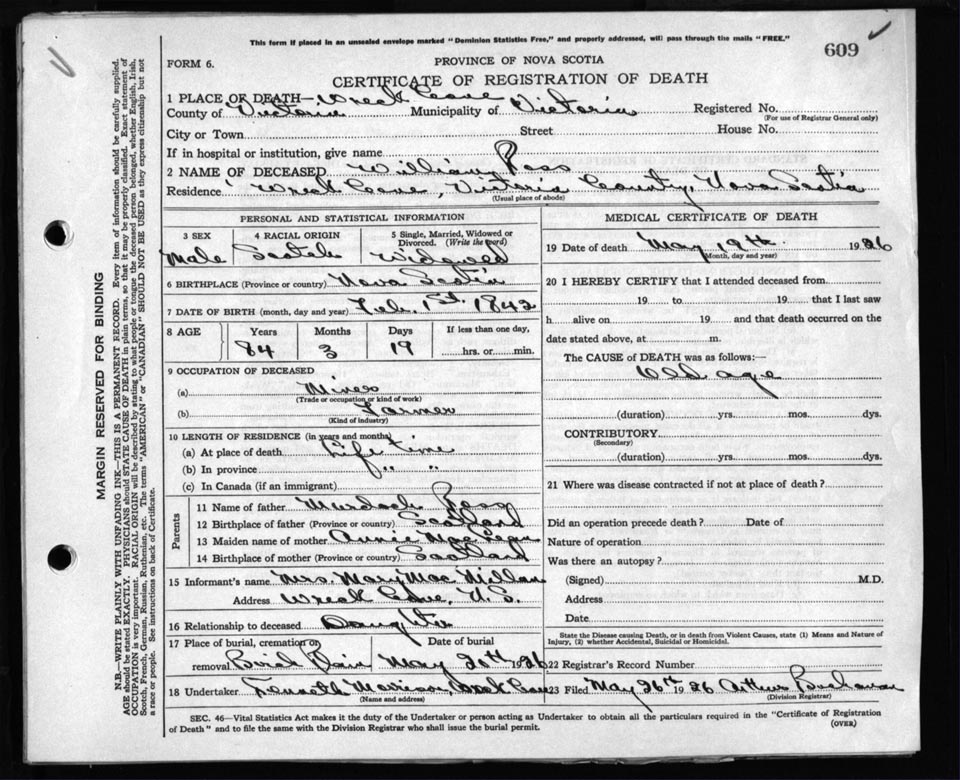 This form if placed in an unsealed envelope marked "Dominion Statistics Free," and properly addressed, will pass through the mails "FREE."
609
FORM 6.
PROVINCE OF NOVA SCOTIA
CERTIFICATE OF REGISTRATION OF DEATH
1 PLACE OF DEATH— Wreck Cove
County of Victoria Municipality of Victoria Registered No.
(For use of Registrar General only)
City or Town Street House No.
If in hospital or institution, give name
2 NAME OF DECEASED William Ross
Residence Wreck Cove, Victoria County, Nova Scotia
(Usual place of abode)
PERSONAL AND STATISTICAL INFORMATION
3 SEX 4 RACIAL ORIGIN 5 Single, Married, Widowed or Divorced. (Write the word)
Male Scotch Widowed
6 BIRTHPLACE (Province or country) Nova Scotia
7 DATE OF BIRTH (month, day and year) Feb. 1st 1842
8 AGE Years Months Days If less than one day,
84 3 19 hrs. or min.
9 OCCUPATION OF DECEASED
(a) Miner
(Trade or occupation or kind of work)
(b) Farmer
(Kind of industry)
10 LENGTH OF RESIDENCE (in years and months)
(a) At place of death Life time
(b) In province " "
(c) In Canada (if an immigrant)
Parents
11 Name of father Murdoch Ross
12 Birthplace of father (Province or country) Scotland
13 Maiden name of mother Annie Mac Lean
14 Birthplace of mother (Province or country) Scotland
15 Informant's name Mrs. Mary Mac Millan
Address Wreck Cove, N.S.
16 Relationship to deceased Daughter
17 Place of burial, cremation or removal Date of burial
Plain May 20th 1926
18 Undertaker Kenneth Morrison, Wreck Cove
(Name and address)
MEDICAL CERTIFICATE OF DEATH
19 Date of death May 19th. 1926
(Month, day and year)
20 I HEREBY CERTIFY that I attended deceased from
19 to 19 that I last saw
h alive on 19 and that death occurred on the
date stated above, at m.
The CAUSE of DEATH was as follows:—
Old age
(duration) yrs. mos. dys.
CONTRIBUTORY
(Secondary)
(duration) yrs. mos. dys.
21 Where was disease contracted if not at place of death?
Did an operation precede death? Date of
Nature of operation
Was there an autopsy?
(Signed) M.D.
Address
Date
State the Disease causing Death, or in death from Violent Causes, state (1) Means and Nature of
Injury, (2) whether Accidental, Suicidal or Homicidal.
22 Registrar's Record Number
23 Filed May 26th 1926 Arthur Buchanan
(Division Registrar)
SEC. 46—Vital Statistics Act makes it the duty of the Undertaker or person acting as Undertaker to obtain all the particulars required in the "Certificate of Registration
of Death" and to file the same with the Division Registrar who shall issue the burial permit.
(OVER)
MARGIN RESERVED FOR BINDING
N.B.—WRITE PLAINLY WITH UNFADING INK—THIS IS A PERMANENT RECORD. Every item of information should be carefully supplied.
AGE should be stated EXACTLY. PHYSICIANS should STATE CAUSE OF DEATH in plain terms, so that it may be properly classified. Exact statement of
OCCUPATION is very important. RACIAL ORIGIN will be described by stating to what people or tongue the deceased person belonged, whether English, Irish,
Scotch, French, German, Russian, Ruthenian, etc. The terms "AMERICAN" or "CANADIAN" SHOULD NOT BE USED as they express citizenship but not
a race or people. See instructions on back of Certificate.